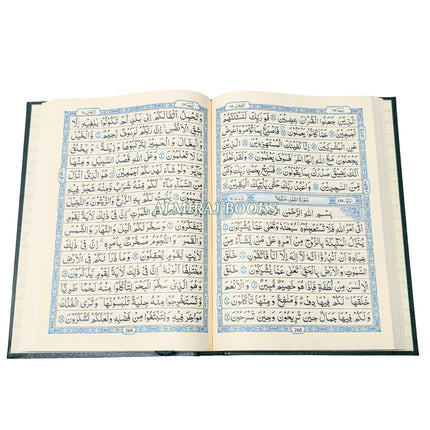 الَّذِيْنَ جَعَلُوا الْقُرْاٰنَ عِضِيْنَ ۝ فَوَرَبِّكَ لَنَسْـَٔلَنَّهُمْ
اَجْمَعِيْنَ ۝ عَمَّا كَانُوْا يَعْمَلُوْنَ ۝ فَاصْدَعْ بِمَا تُؤْمَرُ وَاَعْرِضْ
عَنِ الْمُشْرِكِيْنَ ۝ اِنَّا كَفَيْنٰكَ الْمُسْتَهْزِءِيْنَ ۝ الَّذِيْنَ
يَجْعَلُوْنَ مَعَ اللّٰهِ اِلٰهًا اٰخَرَ فَسَوْفَ يَعْلَمُوْنَ ۝ وَلَقَدْ نَعْلَمُ
اَنَّكَ يَضِيْقُ صَدْرُكَ بِمَا يَقُوْلُوْنَ ۝ فَسَبِّحْ بِحَمْدِ رَبِّكَ وَكُنْ
مِّنَ السّٰجِدِيْنَ ۝ وَاعْبُدْ رَبَّكَ حَتّٰى يَاْتِيَكَ الْيَقِيْنُ ۝
بِسْمِ اللّٰهِ الرَّحْمٰنِ الرَّحِيْمِ
اَتٰٓى اَمْرُ اللّٰهِ فَلَا تَسْتَعْجِلُوْهُ سُبْحٰنَهٗ وَتَعٰلٰى عَمَّا يُشْرِكُوْنَ ۝
يُنَزِّلُ الْمَلٰٓئِكَةَ بِالرُّوْحِ مِنْ اَمْرِهٖ عَلٰى مَنْ يَّشَآءُ مِنْ
عِبَادِهٖٓ اَنْ اَنْذِرُوْٓا اَنَّهٗ لَآ اِلٰهَ اِلَّآ اَنَا فَاتَّقُوْنِ ۝ خَلَقَ
السَّمٰوٰتِ وَالْاَرْضَ بِالْحَقِّ تَعٰلٰى عَمَّا يُشْرِكُوْنَ ۝ خَلَقَ
الْاِنْسَانَ مِنْ نُّطْفَةٍ فَاِذَا هُوَ خَصِيْمٌ مُّبِيْنٌ ۝ وَالْاَنْعَامَ
خَلَقَهَا لَكُمْ فِيْهَا دِفْءٌ وَّمَنَافِعُ وَمِنْهَا تَاْكُلُوْنَ ۝
وَلَكُمْ فِيْهَا جَمَالٌ حِيْنَ تُرِيْحُوْنَ وَحِيْنَ تَسْرَحُوْنَ ۝
268
وَتَحْمِلُ اَثْقَالَكُمْ اِلٰى بَلَدٍ لَّمْ تَكُوْنُوْا بٰلِغِيْهِ اِلَّا
بِشِقِّ الْاَنْفُسِ اِنَّ رَبَّكُمْ لَرَءُوْفٌ رَّحِيْمٌ ۝ وَّالْخَيْلَ
وَالْبِغَالَ وَالْحَمِيْرَ لِتَرْكَبُوْهَا وَزِيْنَةً وَيَخْلُقُ
مَا لَا تَعْلَمُوْنَ ۝ وَعَلَى اللّٰهِ قَصْدُ السَّبِيْلِ وَمِنْهَا
جَآئِرٌ وَلَوْ شَآءَ لَهَدٰىكُمْ اَجْمَعِيْنَ ۝ هُوَ الَّذِيْٓ اَنْزَلَ
مِنَ السَّمَآءِ مَآءً لَّكُمْ مِّنْهُ شَرَابٌ وَّمِنْهُ شَجَرٌ فِيْهِ
تُسِيْمُوْنَ ۝ يُنْۢبِتُ لَكُمْ بِهِ الزَّرْعَ وَالزَّيْتُوْنَ وَالنَّخِيْلَ
وَالْاَعْنَابَ وَمِنْ كُلِّ الثَّمَرٰتِ اِنَّ فِيْ ذٰلِكَ لَاٰيَةً لِّقَوْمٍ
يَّتَفَكَّرُوْنَ ۝ وَسَخَّرَ لَكُمُ الَّيْلَ وَالنَّهَارَ وَالشَّمْسَ
وَالْقَمَرَ وَالنُّجُوْمُ مُسَخَّرٰتٌۢ بِاَمْرِهٖ اِنَّ فِيْ ذٰلِكَ
لَاٰيٰتٍ لِّقَوْمٍ يَّعْقِلُوْنَ ۝ وَمَا ذَرَاَ لَكُمْ فِي الْاَرْضِ
مُخْتَلِفًا اَلْوَانُهٗ اِنَّ فِيْ ذٰلِكَ لَاٰيَةً لِّقَوْمٍ يَّذَّكَّرُوْنَ ۝
وَهُوَ الَّذِيْ سَخَّرَ الْبَحْرَ لِتَاْكُلُوْا مِنْهُ لَحْمًا طَرِيًّا
وَّتَسْتَخْرِجُوْا مِنْهُ حِلْيَةً تَلْبَسُوْنَهَا وَتَرَى الْفُلْكَ
مَوَاخِرَ فِيْهِ وَلِتَبْتَغُوْا مِنْ فَضْلِهٖ وَلَعَلَّكُمْ تَشْكُرُوْنَ ۝
269
ALMIRAJ BOOKS